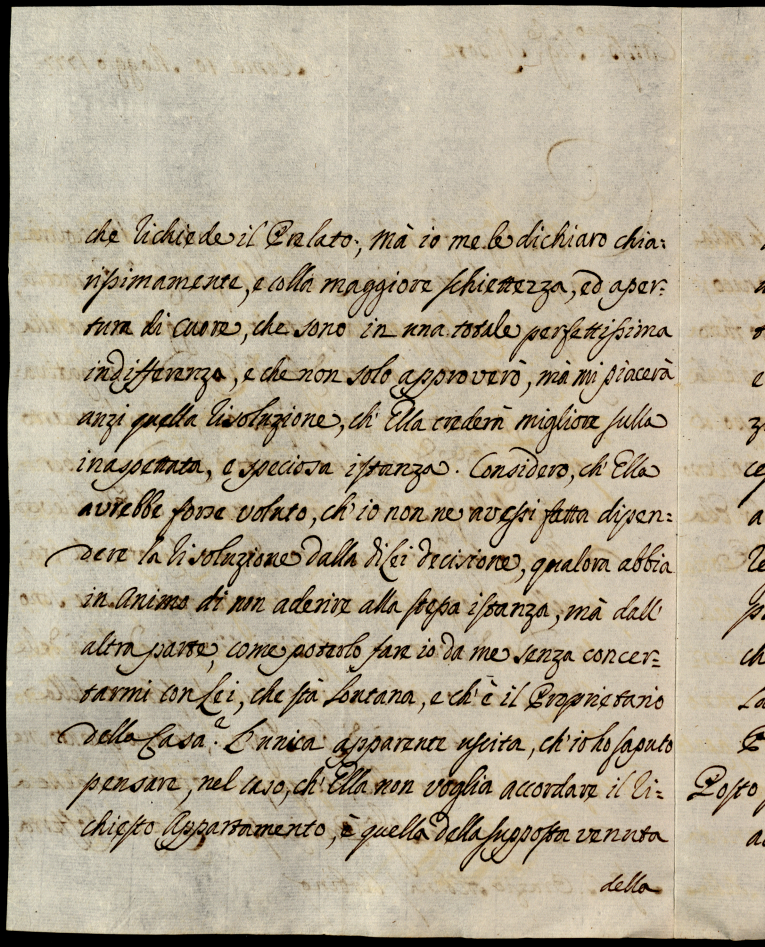 che richiede il Prelato; mà io me le dichiaro chia:
rissimamente, e colla maggiore schiettezza, ed aper:
tura di cuore, che sono in una totale perfettissima
indifferenza, e che non solo approverò, mà mi piacerà
anzi quella risoluzione, ch'Ella crederà migliore sulla
inaspettata, e speciosa istanza. Considero, ch'Ella
avrebbe forse voluto, ch'io non ne avessi fatta dipen:
dere la risoluzione dalla di Lei decisione, qualora abbia
in animo di non aderire alla stessa istanza, mà dall'
altra parte, come poterlo fare io da me senza concer:
tarmi con Lei, che stà lontana, e ch'è il Proprietario
della Casa? L'unica apparente uscita, ch'io ho saputo
pensare, nel caso, ch'Ella non voglia accordare il ri:
chiesto Appartamento, è quella della supposta venuta
della
Posto